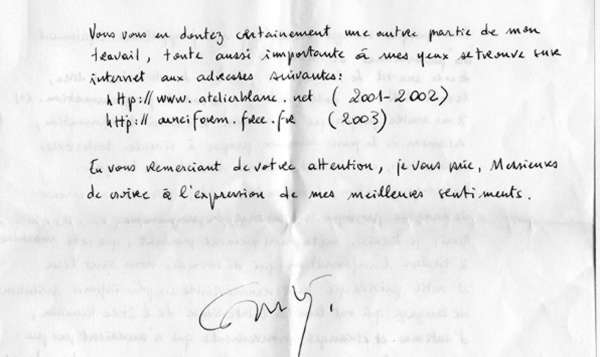 Vous vous en doutez certainement une autre partie de mon
travail, toute aussi importante à mes yeux se trouve sur
internet aux adresses suivantes:
http://www.atelierblanc.net (2001-2002)
http:// .free.fr (2003)
En vous remerciant de votre attention, je vous prie, Messieurs
de croire à l'expression de mes meilleures sentiments.